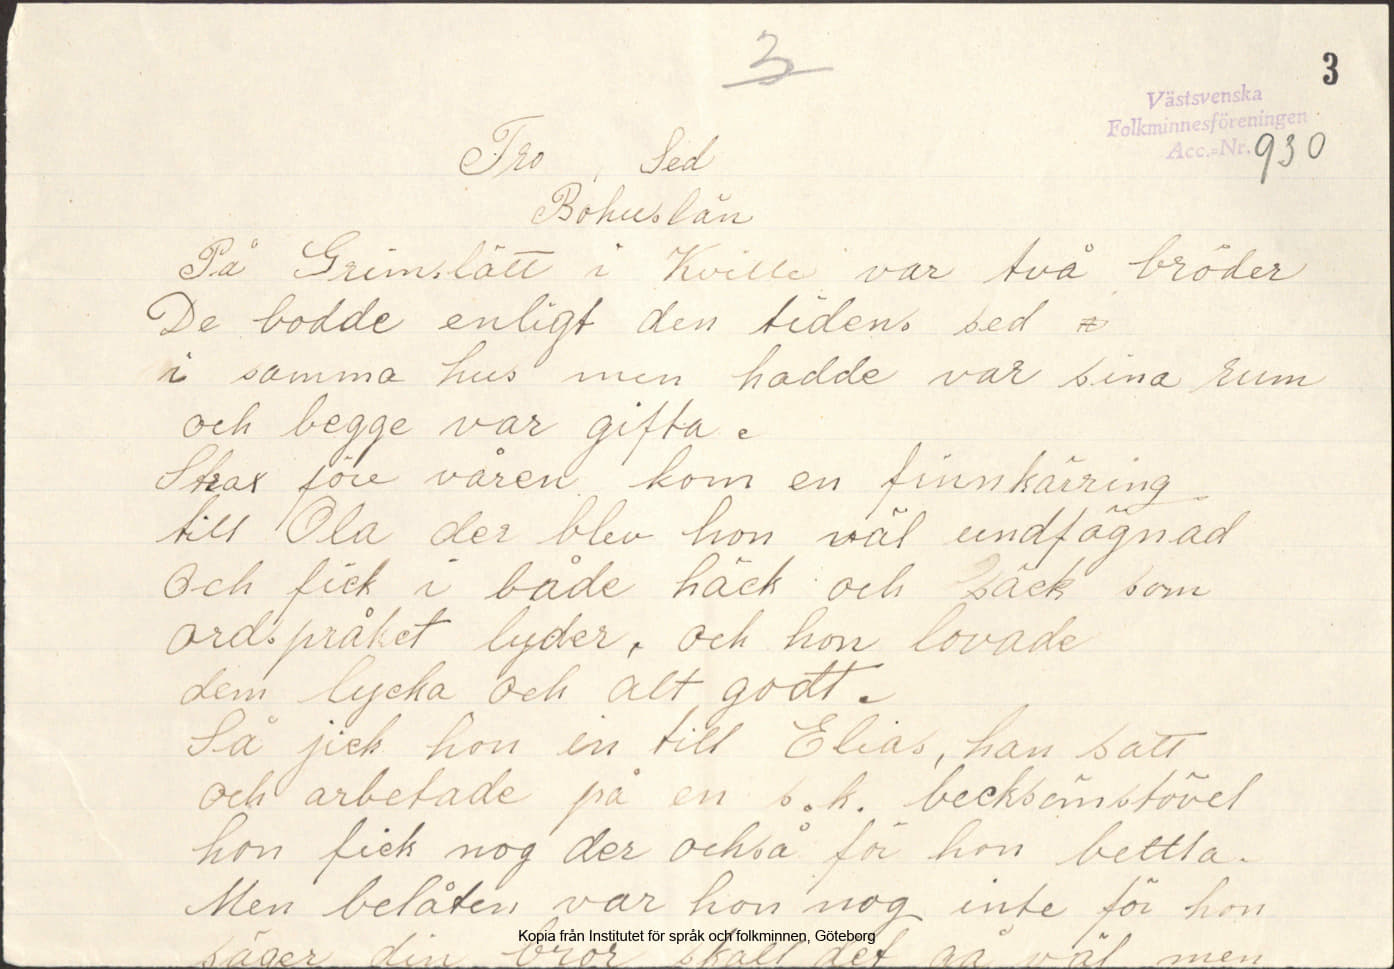 3
3
Västsvenska
Folkminnesföreningen
Acc.-Nr. 930
Tro, Sed
Bohuslän
På Grimslätt i Kville var två bröder
De bodde enligt den tidens sed
i samma hus men hadde var sina rum
och begge var gifta.
Strax före våren kom en finnkärring
till Ola der blev hon väl undfägnad
och fick i både häck och säck som
ordspråket lyder, och hon lovade
dem lycka och alt godt.
Så jick hon in till Elias, han satt
och arbetade på en s.k. becksömstövel
hon fick nog der också för hon bettla.
Men belåten var hon nog inte för hon
säger din bror skall det gå väl men
Kopia från Institutet för språk och folkminnen, Göteborg